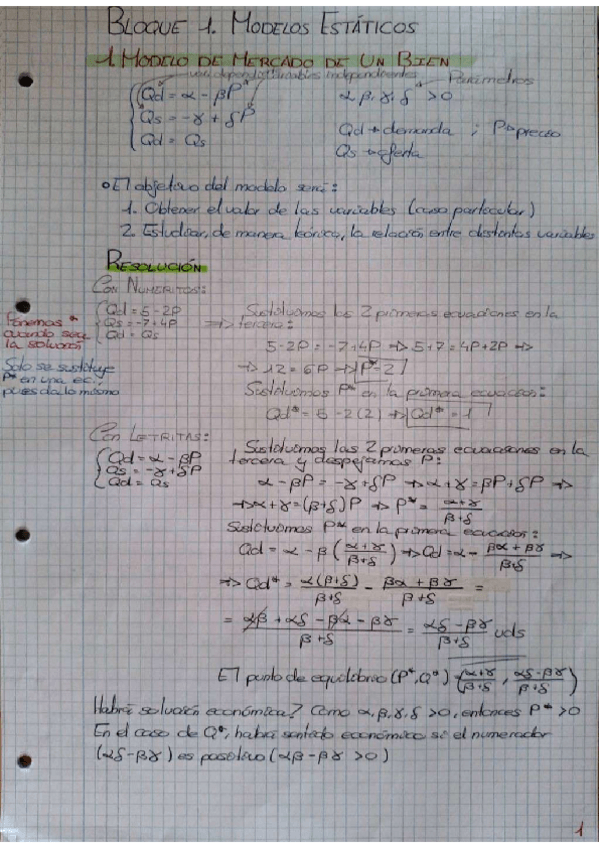 BLOQUE 1. MODELOS ESTÁTICOS
1. MODELO DE MERCADO DE UN BIEN
variables independientes Parámetros
Qd = α - βP α, β, γ, δ > 0
Qs = -γ + δP
Qd = Qs
Qd → demanda ; P → precio
Qs → oferta
• El objetivo del modelo será:
1. Obtener el valor de las variables (caso particular)
2. Estudiar, de manera teórica, la relación entre distintas variables
RESOLUCIÓN
CON NUMERITOS:
Qd = 5 - 2P
Qs = -7 + 4P
Qd = Qs
Ponemos *
cuando sea
la solución
Solo se sustituye
P* en una ec.,
pues da lo mismo
Sustituimos las 2 primeras ecuaciones en la
tercera:
5 - 2P = -7 + 4P → 5 + 7 = 4P + 2P →
→ 12 = 6P → P* = 2
Sustituimos P* en la primera ecuación:
Qd* = 5 - 2(2) → Qd* = 1
CON LETRITAS:
Qd = α - βP
Qs = -γ + δP
Qd = Qs
Sustituimos las 2 primeras ecuaciones en la
tercera y despejamos P:
α - βP = -γ + δP → α + γ = βP + δP →
→ α + γ = (β + δ)P → P* = α+γ / β+δ
Sustituimos P* en la primera ecuación:
Qd = α - β (α+γ / β+δ) → Qd = α - βα + βγ / β+δ →
→ Qd* = α(β+δ) / β+δ - βα + βγ / β+δ =
= αβ + αδ - βα - βγ / β+δ = αδ - βγ / β+δ uds
El punto de equilibrio (P*, Q*) = (α+γ / β+δ , αδ-βγ / β+δ)
Habrá solución económica? Como α, β, γ, δ > 0, entonces P* > 0
En el caso de Q*, habrá sentido económico si el numerador
(αδ - βγ) es positivo (αβ - βγ > 0)
1